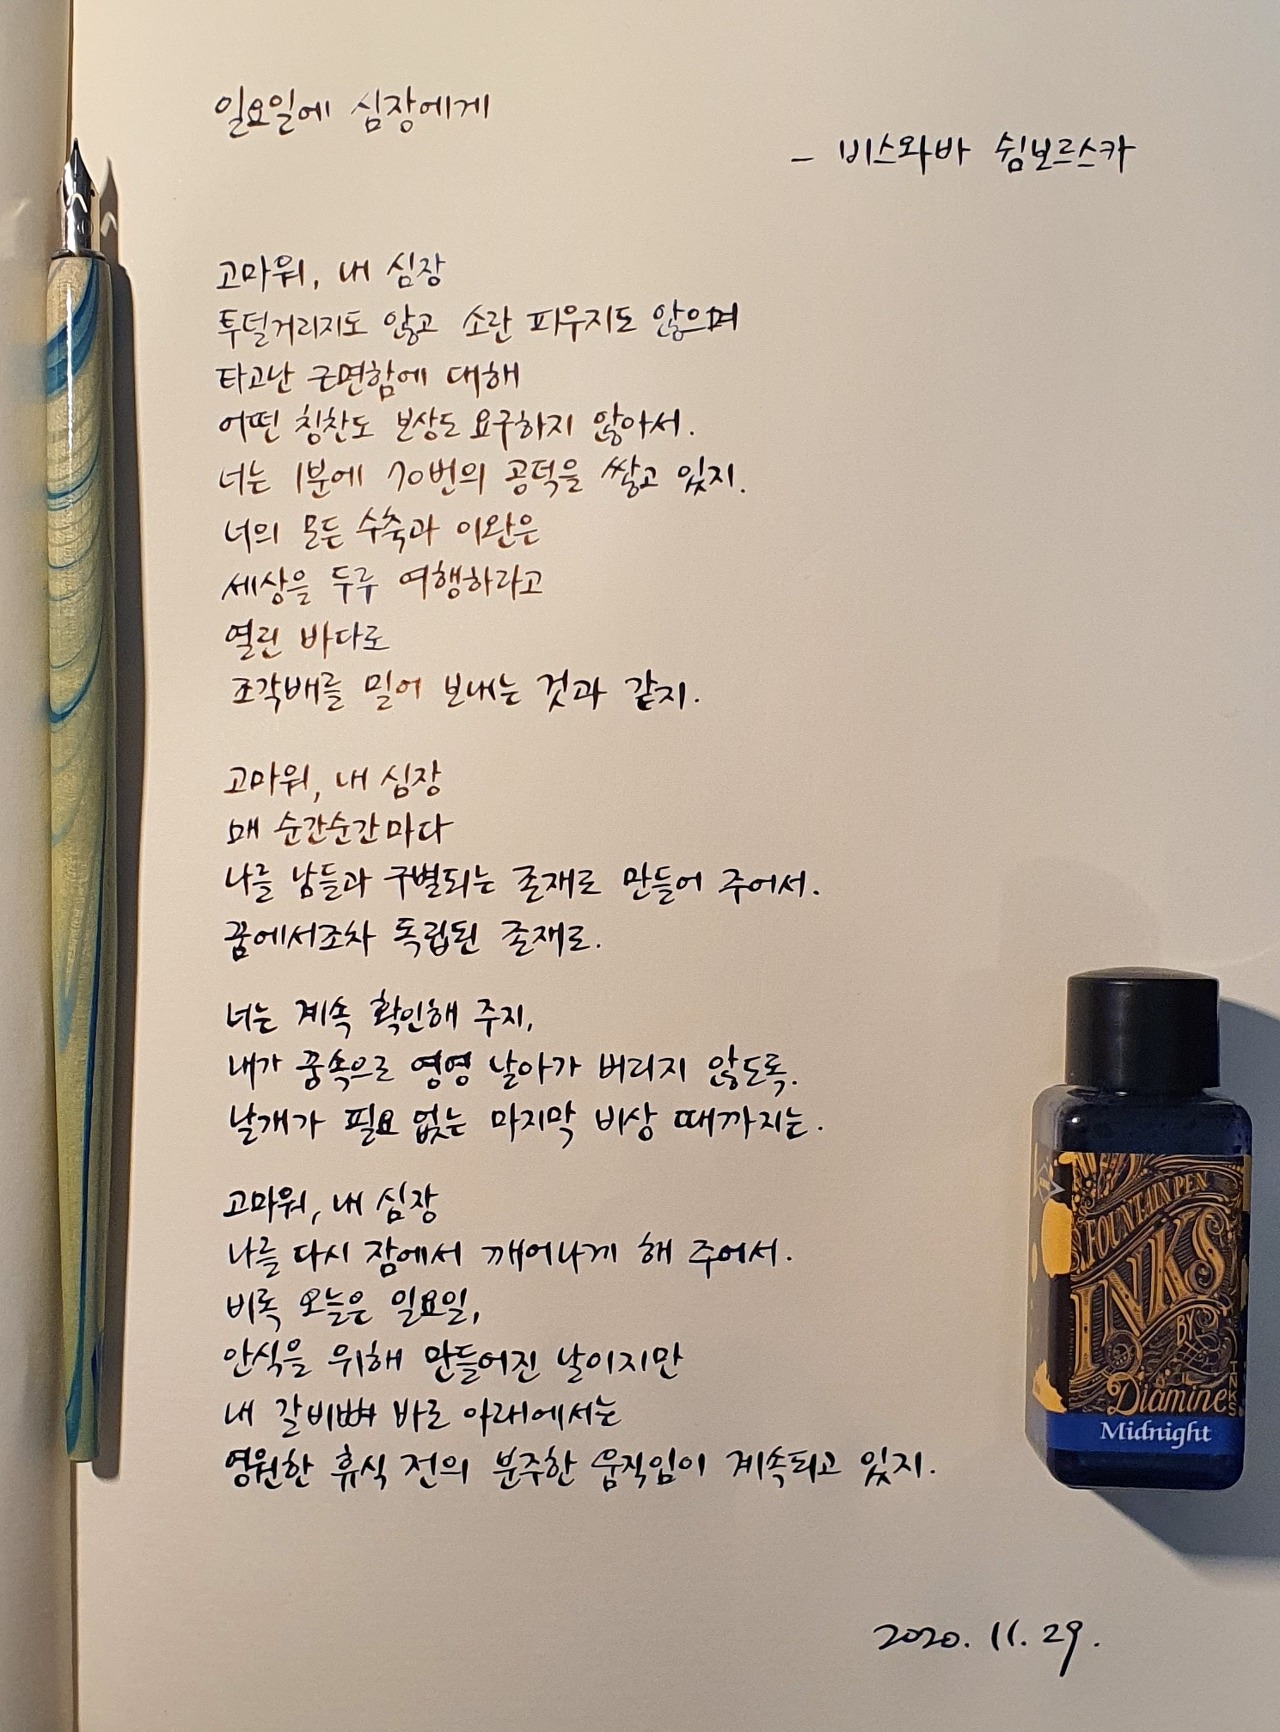 일요일에 심장에게
- 비스와바 쉼보르스카
고마워, 내 심장
투덜거리지도 않고 소란 피우지도 않으며
타고난 근면함에 대해
어떤 칭찬도 보상도 요구하지 않아서.
너는 1분에 70번의 공덕을 쌓고 있지.
너의 모든 수축과 이완은
세상을 두루 여행하라고
열린 바다로
조각배를 밀어 보내는 것과 같지.
고마워, 내 심장
매 순간순간마다
나를 남들과 구별되는 존재로 만들어 주어서.
꿈에서조차 독립된 존재로.
너는 계속 확인해 주지,
내가 꿈속으로 영영 날아가 버리지 않도록.
날개가 필요 없는 마지막 비상 때까지는.
고마워, 내 심장
나를 다시 잠에서 깨어나게 해 주어서.
비록 오늘은 일요일,
안식을 위해 만들어진 날이지만
내 갈비뼈 바로 아래에서는
영원한 휴식 전의 분주한 움직임이 계속되고 있지.
2020. 11. 29.
FOUNTAIN PEN
INKS
BY
Diamine
INKS
Midnight